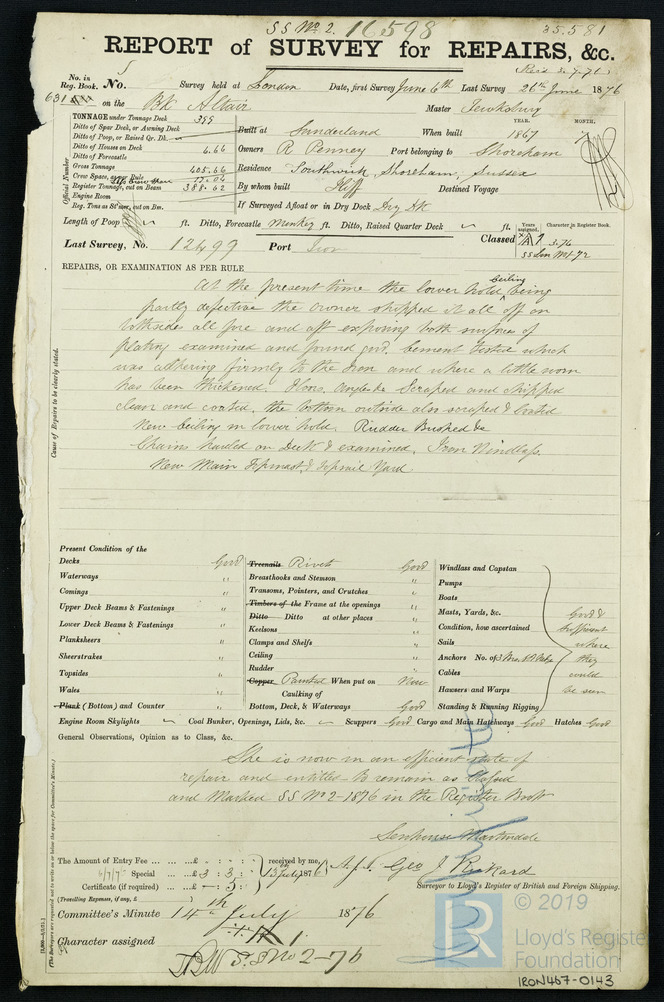 SS No 2. 16598 35.581
REPORT of SURVEY for REPAIRS, &c.
No. in Reg. Book. 631
No. Survey held at London Date, first Survey June 6th Last Survey 26th June 1876
on the Bk Altair Master Tewksbury
TONNAGE under Tonnage Deck 399
Ditto of Spar Deck, or Awning Deck
Ditto of Poop, or Raised Qr. Dk.
Ditto of Houses on Deck 6.66
Ditto of Forecastle
Gross Tonnage 405.66
Crew Space, as per Rule 17.04
Register Tonnage, cut on Beam 388.62
Engine Room
Reg. Tons as St'mer, cut on Bm.
Official Number
Built at Sunderland When built 1867
YEAR. MONTH.
Owners R Penney Port belonging to Shoreham
Residence Southwick, Shoreham, Sussex
By whom built Iliff Destined Voyage
If Surveyed Afloat or in Dry Dock Dry Dk
Length of Poop ft. Ditto, Forecastle Monkey ft. Ditto, Raised Quarter Deck ft.
Last Survey, No. 12499 Port Iron
Classed
Years assigned. Character in Register Book.
A 1 3.76
SS Lon No 1-72
REPAIRS, OR EXAMINATION AS PER RULE
At the present time the lower hold ceiling being
partly defective the owner stripped it all off on
bothsides all fore and aft exposing both surfaces of
plating examined and found good. Cement tested which
was adhering firmly to the Iron and where a little worn
has been thickened. Floors, angles &c Scraped and chipped
clean and coated. the bottom outside also scraped & coated
New Ceiling in lower hold. Rudder Bushed &c
Chains hauled on Deck & examined. Iron Windlass.
New Main Topmast & Topsail Yard.
Cause of Repairs to be clearly stated.
Present Condition of the
Decks Good
Waterways "
Comings "
Upper Deck Beams & Fastenings "
Lower Deck Beams & Fastenings "
Planksheers "
Sheerstrakes "
Topsides "
Wales "
Plank (Bottom) and Counter "
Treenails Rivets Good
Breasthooks and Stemson "
Transoms, Pointers, and Crutches "
Timbers of the Frame at the openings "
Ditto Ditto at other places "
Keelsons "
Clamps and Shelfs "
Ceiling "
Rudder "
Copper Painted When put on Now
Caulking of
Bottom, Deck, & Waterways Good
Windlass and Capstan
Pumps
Boats
Masts, Yards, &c.
Condition, how ascertained
Sails
Anchors No. of
Cables
Hawsers and Warps
Standing & Running Rigging
Good & sufficient where they could be seen
Engine Room Skylights Coal Bunker, Openings, Lids, &c. Scuppers Good Cargo and Main Hatchways Good Hatches Good
General Observations, Opinion as to Class, &c.
She is now in an efficient state of
repair and entitled to remain as Classed
and Marked SS No 2-1876 in the Register Book
Senhouse Martindale
The Amount of Entry Fee ... ...£
Special ... ..£ 3 : 3 :
Certificate (if required) ...£ - : 5 :
(Travelling Expenses, if any, £ )
received by me,
13 July 1876
Geo J. Rickard
Surveyor to Lloyd's Register of British and Foreign Shipping.
Committee's Minute 14th July 1876
Character assigned A 1
S.S No 2-76
(The Surveyors are requested not to write on or below the space for Committee's Minute.)
© 2019
LR
Lloyd's Register
Foundation
IRON467-0143